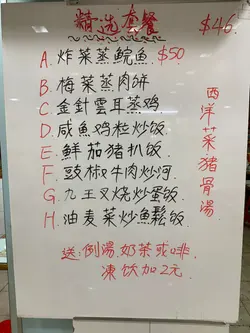 精选套餐 $46
A. 炸菜蒸鯇鱼 $50
B. 梅菜蒸肉餅
C. 金針雲耳蒸鸡
D. 咸鱼鸡粒炒饭
E. 鮮茄猪扒饭
F. 豉椒牛肉炒河
G. 九王叉烧炒蛋饭
H. 油麦菜炒魚鬆饭
西洋菜猪骨湯
送:例湯.奶茶或啡
凍饮加2元